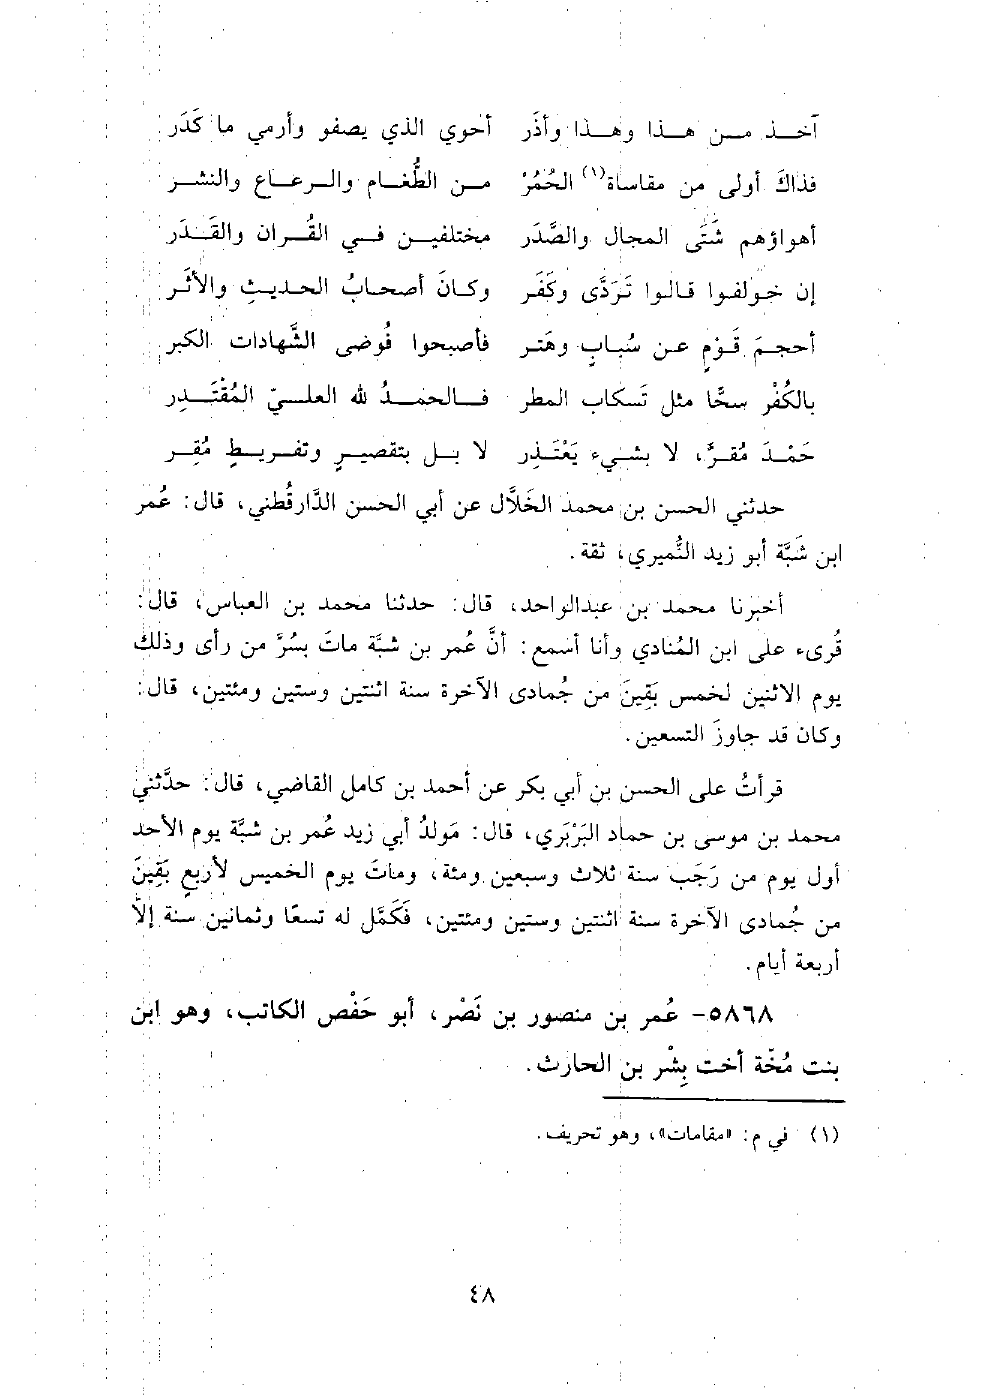 آخــذ مــن هــذا وهــذا وأذَر أحوي الذي يصفو وأرمي ما كَدَر
فذاكَ أولى من مقاساة(١) الحُمُرْ مــن الطَّغــام والــرعــاع والنشــر
أهواؤهم شَتَّى المجال والصَّدَر مختلفيــن فــي القُــران والقَــدَر
إن خـولفـوا قـالـوا تَـرَدَّى وكَفَـر وكـانَ أصحـابُ الحـديـثِ والأثَـر
أحجـمَ قَـوْمٍ عـن سُبـابٍ وهَتـر فأصبحوا فُوضى الشَّهادات الكبر
بالكُفْرِ سحًّا مثل تَسكاب المطر فــالحمــدُ لله العلــيّ المُقْتَــدِر
حَمْـدَ مُقـرٍّ، لا بشـيء يَعْتَـذِر لا بـل بتقصيـرٍ وتفـريـطٍ مُقِـر
حدثني الحسن بن محمد الخَلَّال عن أبي الحسن الدَّارقُطني، قال: عُمر
ابن شَبَّة أبو زيد النُّميري، ثقة.
أخبرنا محمد بن عبدالواحد، قال: حدثنا محمد بن العباس، قال:
قُرىء على ابن المُنادي وأنا أسمع: أنَّ عُمر بن شبَّة ماتَ بسُرَّ من رأى وذلك
يوم الاثنين لخمس بَقِينَ من جُمادى الآخرة سنة اثنتين وستين ومئتين، قال:
وكان قد جاوزَ التسعين.
قرأتُ على الحسن بن أبي بكر عن أحمد بن كامل القاضي، قال: حدَّثني
محمد بن موسى بن حماد البَرْبَري، قال: مَولدُ أبي زيد عُمر بن شبَّة يوم الأحد
أول يوم من رَجَب سنة ثلاث وسبعين ومئة، وماتَ يوم الخميس لأربعٍ بَقِينَ
من جُمادى الآخرة سنة اثنتين وستين ومئتين، فَكَمَّل له تسعًا وثمانين سنة إلَّا
أربعة أيام.
٥٨٦٨- عُمر بن منصور بن نَصْر، أبو حَفْص الكاتب، وهو ابن
بنت مُخَّة أخت بِشْر بن الحارث.
(١) في م: «مقامات»، وهو تحريف.
٤٨